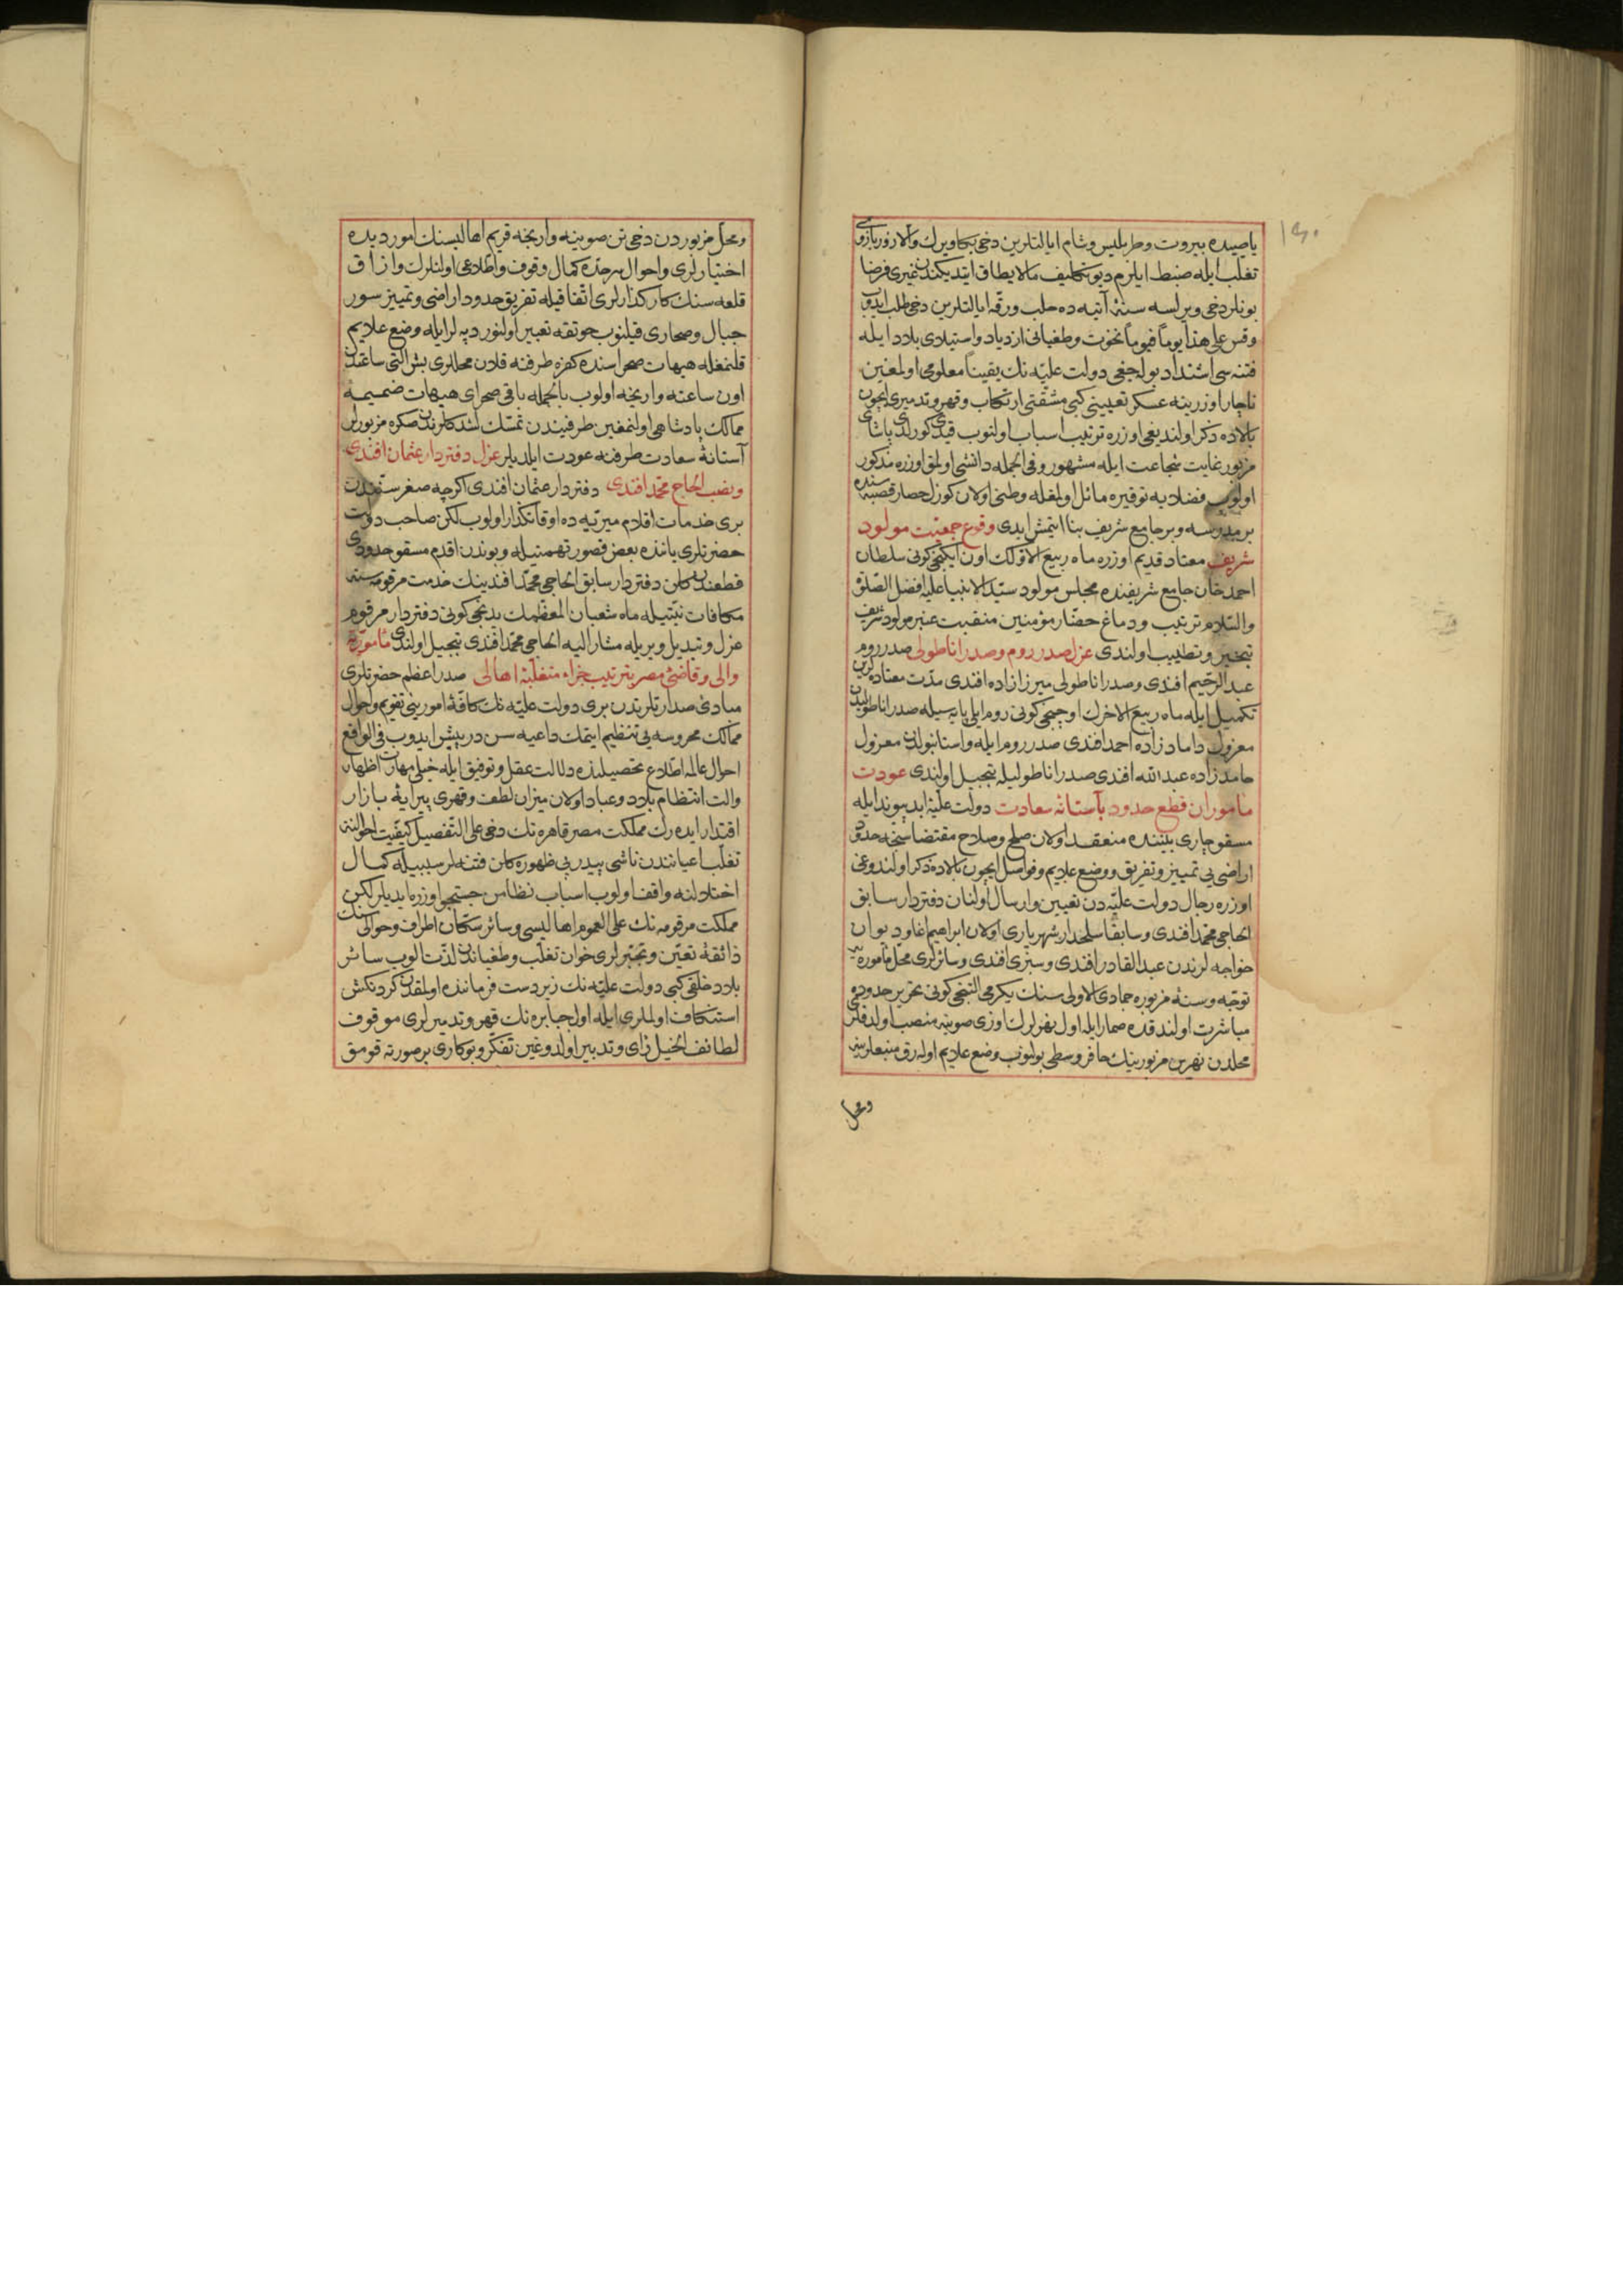 ١٣٠
یا صیده بیروت وطرابلس وشام ایالتلرین دخی بکا ویرك والا زور بازوی
تغلب ایله ضبط ایلرم دیو تکلیف مالایطاق ایتدیکندن غیری فرضا
بونلر دخی ویرلسه سنۀ آتیه ده حلب ورقه ایالتلرین دخی طلب ایدوب
وقس علی هذا یوماً فیوماً نخوت وطغیانی ازدیاد واستیلای بلاد ایله
فتنه سی اشتداد بوله جغی دولت علیّه نك یقیناً معلومی اولمغین
ناچار اوزرینه عسکر تعیینی کبی مشقتی ارتکاب وقهر وتدمیری ایچون
بالاده ذکر اولندیغی اوزره ترتیب اسباب اولنوب قیدی کورلدی پاشای
مزبور غایت شجاعت ایله مشهور وفی الجمله دانشی اولمق اوزره مذکور
اولوب فضلایه توقیره مائل اولمغله وطنی اولان کوزلحصار قصبه سنده
بر مدرسه وبر جامع شریف بنا ایتمش ایدی وقوع جمعیت مولود
شریف معتاد قدیم اوزره ماه ربیع الاوّلك اون ایکنجی کونی سلطان
احمد خان جامع شریفنده مجلس مولود سیّد الانبیا علیه افضل الصّلوة
والسّلام ترتیب ودماغ حضّار مؤمنین منقبت عنبر مولود شریف
تبخیر وتطییب اولندی عزل صدر روم وصدر اناطولی صدر روم
عبد الرّحیم افندی وصدر اناطولی میرزا زاده افندی مدّت معتاده لرین
تکمیل ایله ماه ربیع الاخرك اوچنجی کونی روم ایلی پایه سیله صدر اناطولیدن
معزول داماد زاده احمد افندی صدر روم ایله واستانبولدن معزول
حامد زاده عبد الله افندی صدر اناطولیله تبجیل اولندی عودت
مأموران قطع حدود بآستانه سعادت دولت علیّۀ ابد پیوند ایله
مسقو چاری بیننده منعقد اولان صلح وصلاح مقتضاسنجه حدود
اراضی یی تمییز وتفریق ووضع علایم وفواصل ایچون بالاده ذکر اولندوغی
اوزره رجال دولت علیّه دن تعیین وارسال اولنان دفتردار سابق
الحاجی محمّد افندی وسابقا سلحدار شهریاری اولان ابراهیم اغا ودیوان
خواجه لرندن عبد القادر افندی وسرّی افندی وسائرلری محلّ مأموره یه
توجّه وسنۀ مزبوره جمادی الاولی سنك یکرمی التنجی کونی تحریر حدوده
مباشرت اولندقده صمار ایله اول نهرلرك اوزی صوینه منصب اولدقلری
محلدن نهرین مزبورینك حافر وسطی بولنوب وضع علایم اوله رق منبعلرینه
ومحل
ومحل مزبوردن دخی تن صوینه وارنجه قریم اهالیسنك امور دیده
اختیارلری واحوال سرحدّه کمال وقوف واطّلاعی اولنلرك وازاق
قلعه سنك کارکذارلری اتّفاقیله تفریق حدود اراضی وتمییز سور
جبال وصحاری قیلنوب جوتقه تعبیر اولنور دپه لر ایله وضع علایم
قلنمغله هیهات صحراسنده کفره طرفنه قلان محللری بش التی ساعتدن
اون ساعته وارنجه اولوب بالجمله باقی صحرای هیهات ضمیمۀ
ممالك پادشاهی اولنمغین طرفیندن تمسّك لشدکلرندن صکره مزبورلر
آستانۀ سعادت طرفنه عودت ایلدیلر عزل دفتردار عثمان افندی
ونصب الحاج محمّد افندی دفتردار عثمان افندی اکرچه صغر سنّندن
بری خدمات اقلام میریّه ده اوقاتکذار اولوب لکن صاحب دولت
حضرتلری یاننده بعض قصور تهمتیله وبوندن اقدم مسقو حدودی
قطعندن کلن دفتردار سابق الحاجی محمّد افندینك خدمت مرقومه سنه
مکافات نیّتیله ماه شعبان المعظّمك یدنجی کونی دفتردار مرقوم
عزل وتبدیل ویریله مشار الیه الحاجی محمّد افندی تبجیل اولندی مأموریّت
والی وقاضئ مصر بترتیب جزاء متغلّبۀ اهالی صدر اعظم حضرتلری
مبادئ صدارتلرندن بری دولت علیّه نك کافّۀ امورینی تقویم واحوال
ممالك محروسه یی تنظیم ایتمك داعیه سن درپیش ایدوب فی الواقع
احوال عالمه اطّلاع تحصیلنده دلالت عقل وتوفیق ایله خیلی مهارت اظهار
والت انتظام بلاد وعباد اولان میزان لطف وقهری پیرایۀ بازار
اقتدار ایده رك مملکت مصر قاهره نك دخی علی التّفصیل کیفیّت احوالنه
تغلّب اعیانندن ناشی پیدرپی ظهوره کلن فتنه لر سببیله کمال
اختلالنه واقف اولوب اسباب نظامن جستجو اوزره ایدیلر لکن
مملکت مرقومه نك علی العموم اهالیسی وسائر سکّان اطراف وحوالیسنك
ذائقۀ تعیّن وتجبّرلری خوان تغلّب وطغیاندن لذّت الوب سائر
بلاد خلقی کبی دولت علیّه نك زیردست فرماننده اولمقدن کردنکش
استنکاف اولملری ایله اول جبابره نك قهر وتدمیرلری موقوف
لطائف الحیل رای وتدبیر اولدوغین تفکّر وبو کاری بر صورته قومق